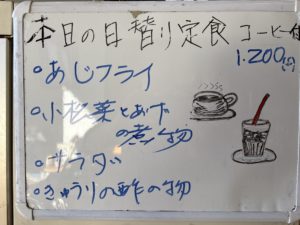 本日の日替り定食 コーヒー付
1.200(円)
○あじフライ
○小松菜とあげ
の煮物
○サラダ
○きゅうりの酢の物